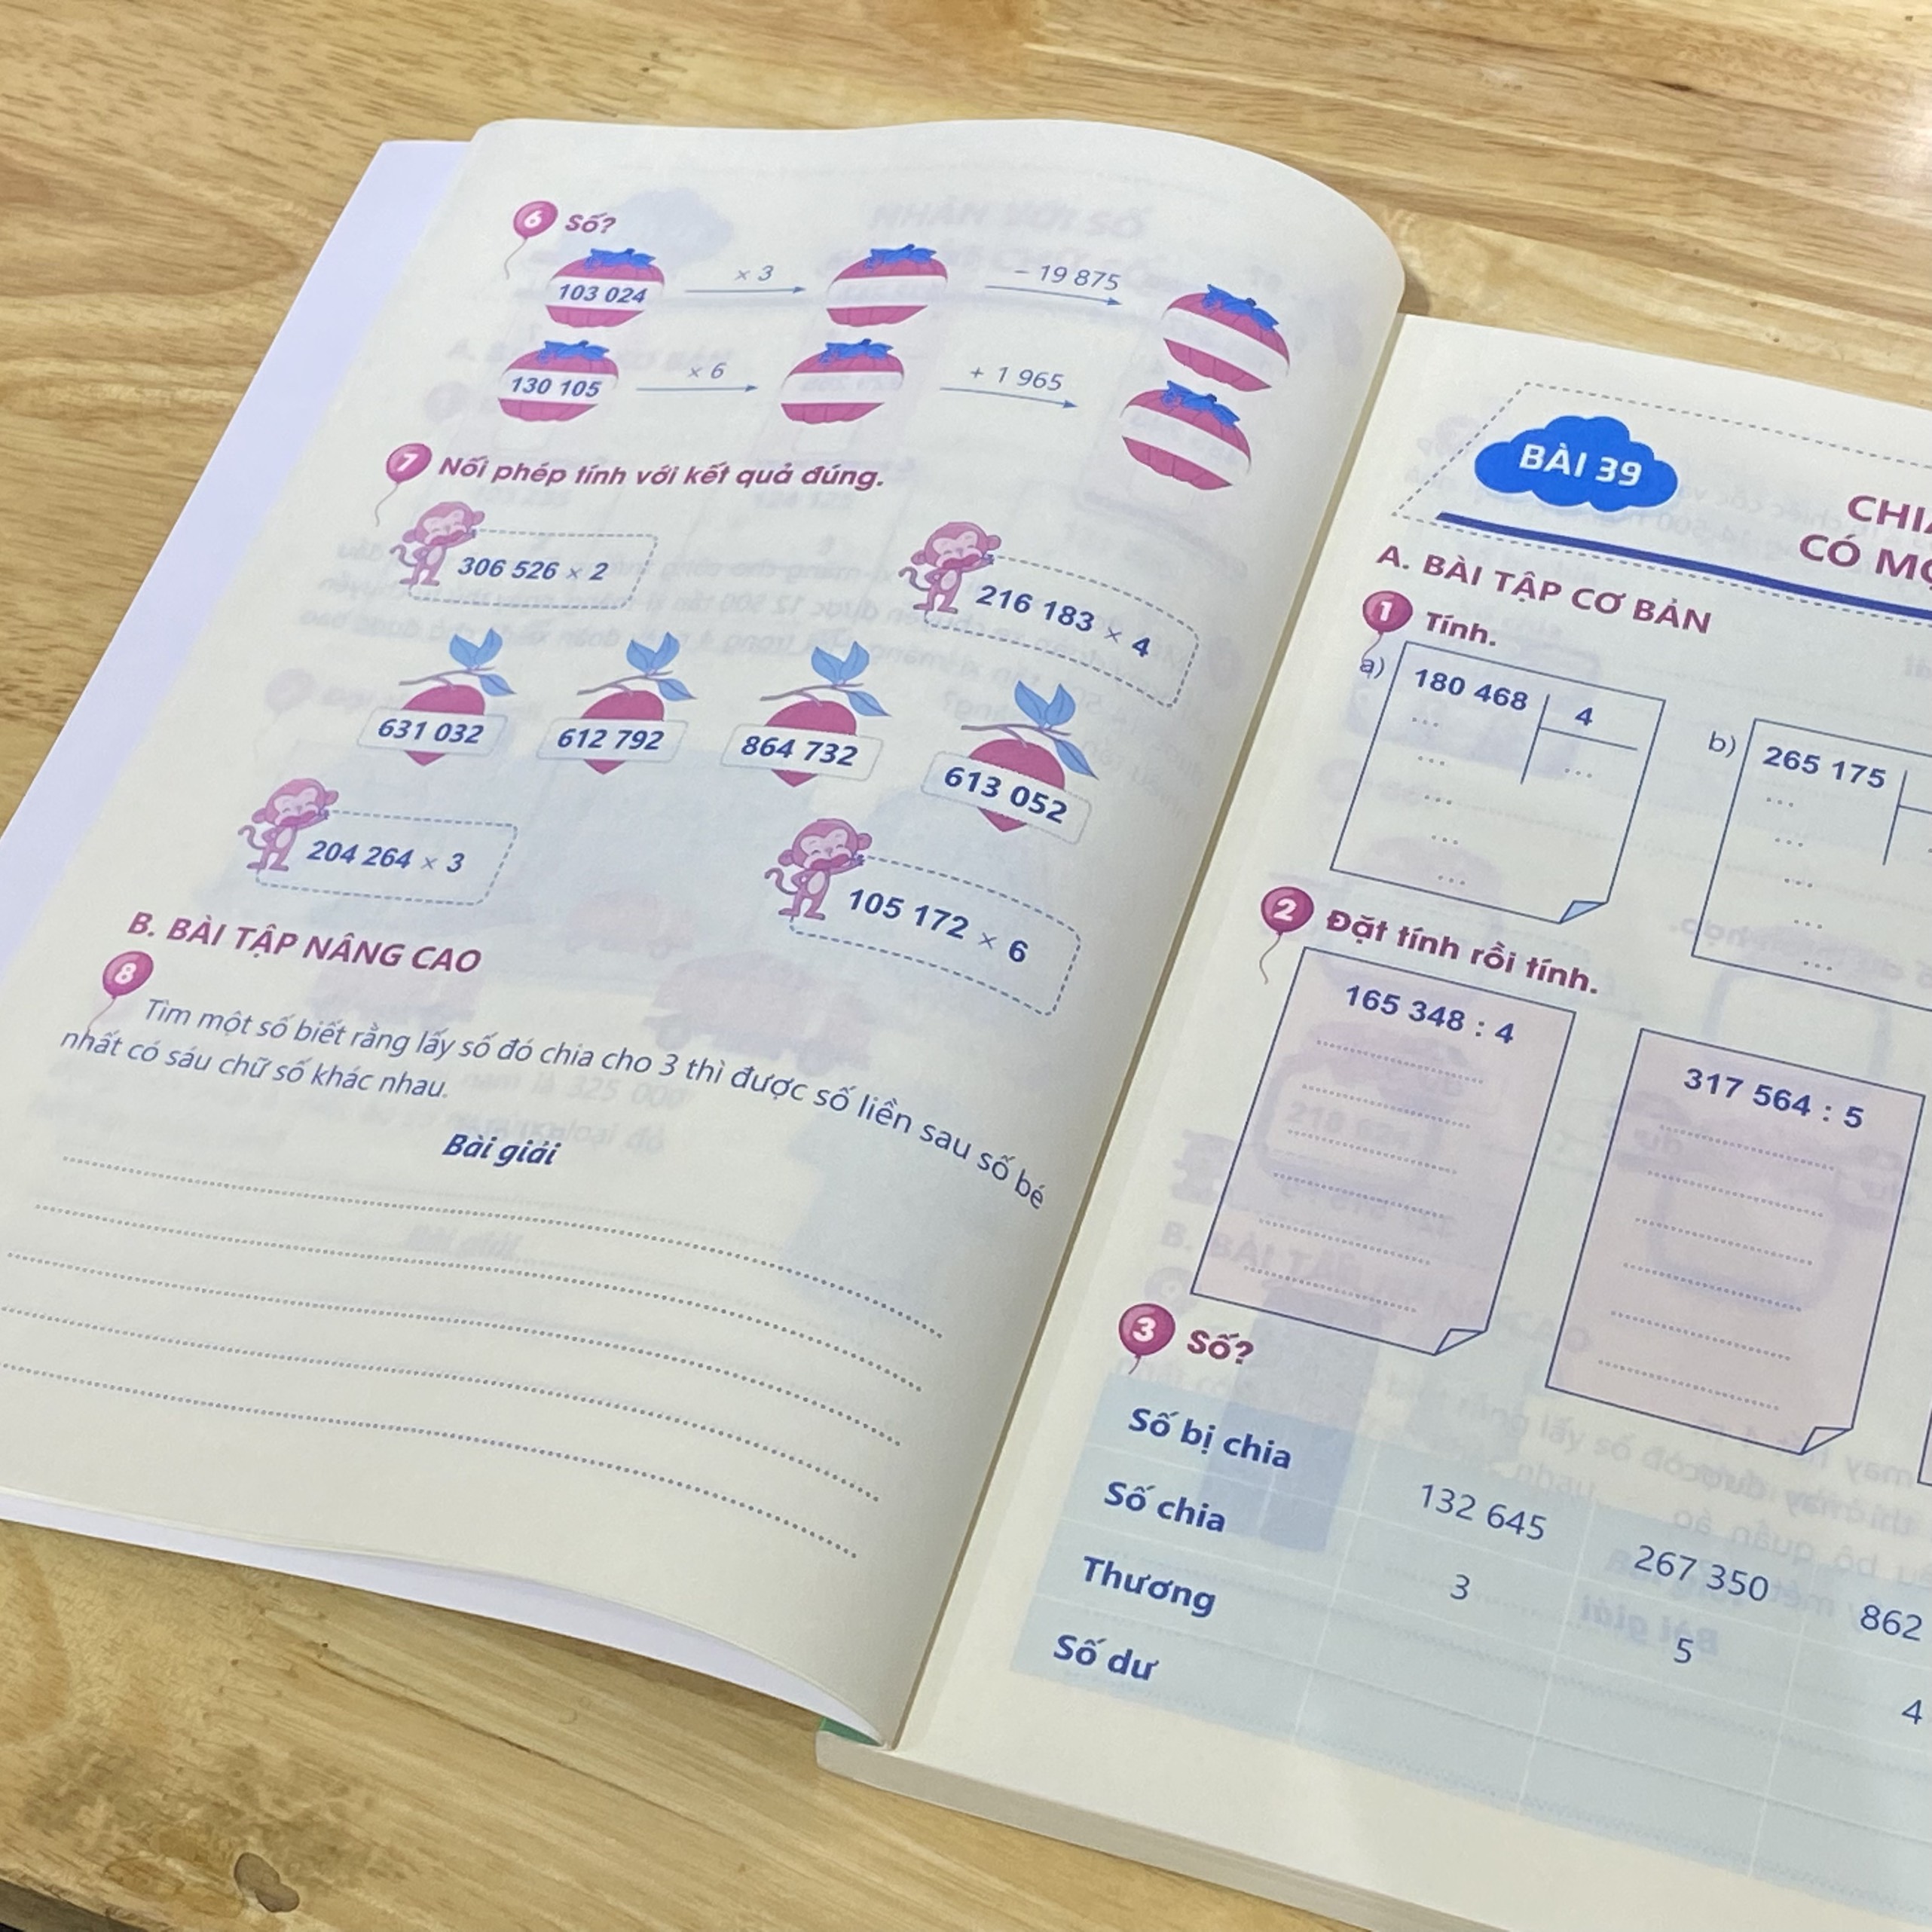 6 Số?
103 024 × 3 – 19 875
130 105 × 6 + 1 965
7 Nối phép tính với kết quả đúng.
306 526 × 2
216 183 × 4
631 032 612 792 864 732 613 052
204 264 × 3
105 172 × 6
B. BÀI TẬP NÂNG CAO
8 Tìm một số biết rằng lấy số đó chia cho 3 thì được số liền sau số bé
nhất có sáu chữ số khác nhau.
Bài giải
BÀI 39
CÓ
A. BÀI TẬP CƠ BẢN
1 Tính.
a) 180 468 4
...
...
...
...
...
...
b) 265 175
...
...
...
...
...
2 Đặt tính rồi tính.
165 348 : 4
317 564 : 5
3 Số?
Số bị chia 132 645 267 350 862
Số chia 3 5 4
Thương
Số dư